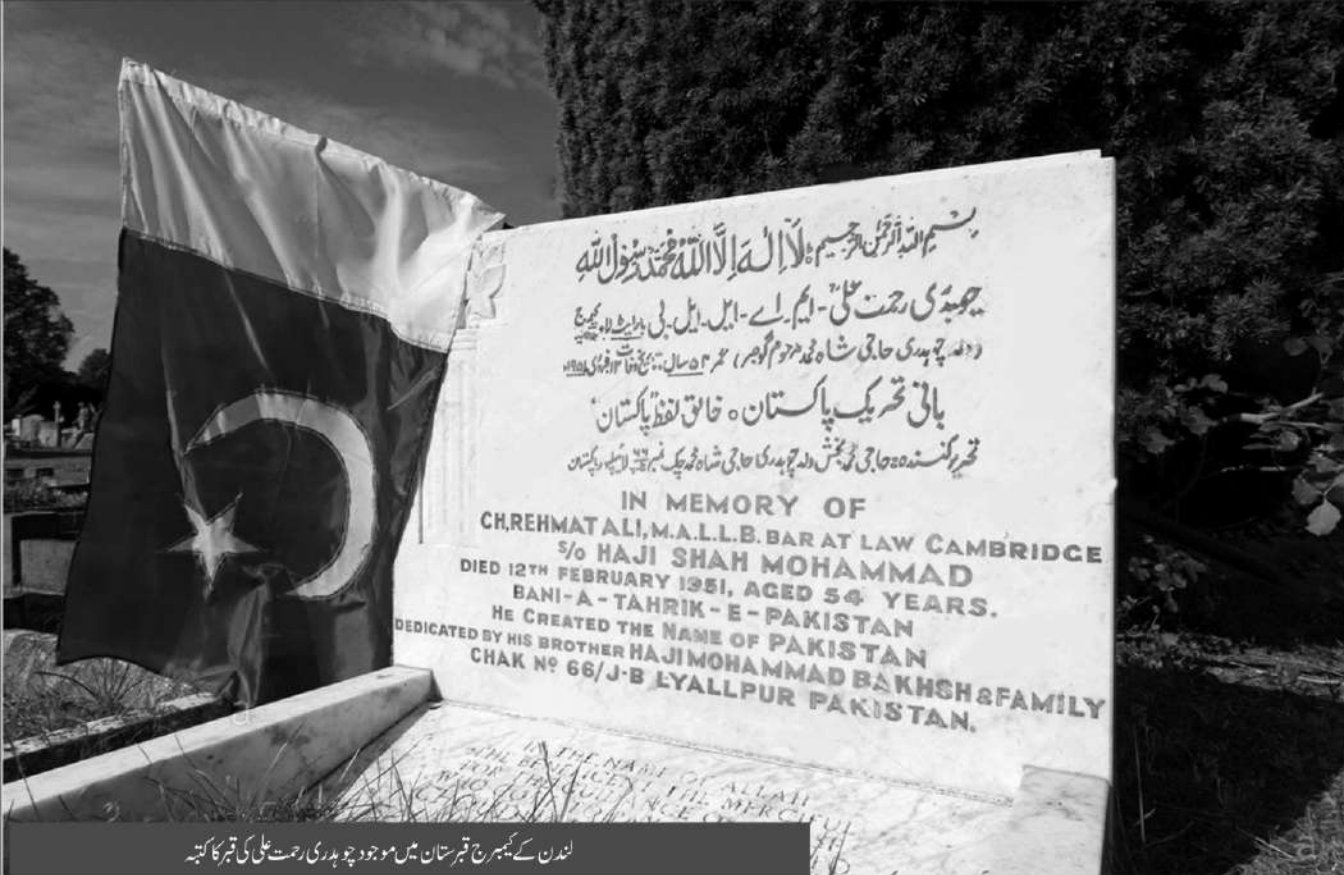 بِسْمِ اللہِ الرَّحْمٰنِ الرَّحِیْمِ لَآ اِلٰہَ اِلَّا اللّٰہُ مُحَمَّدٌ رَّسُوْلُ اللّٰہِ
چوہدری رحمت علی - ایم - اے - ایل - ایل - بی بار ایٹ لاء کیمبرج
(ولد چوہدری حاجی شاہ محمد مرحوم گوجر) عمر ۵۴ سال
بانی تحریک پاکستان ○ خالق لفظ "پاکستان"
تحریر کنندہ حاجی محمد بخش ولد چوہدری حاجی شاہ محمد چک نمبر لائلپور پاکستان
IN MEMORY OF
CH, REHMAT ALI, M.A.L.L.B. BAR AT LAW CAMBRIDGE
S/O HAJI SHAH MOHAMMAD
DIED 12TH FEBRUARY 1951, AGED 54 YEARS.
BANI-A-TAHRIK-E-PAKISTAN
HE CREATED THE NAME OF PAKISTAN
DEDICATED BY HIS BROTHER HAJI MOHAMMAD BAKHSH & FAMILY
CHAK Nº 66/J-B LYALLPUR PAKISTAN.
IN THE NAME OF ALLAH
THE BENEFICENT THE MERCIFUL
لندن کے کیمبرج قبرستان میں موجود چوہدری رحمت علی کی قبر کا کتبہ